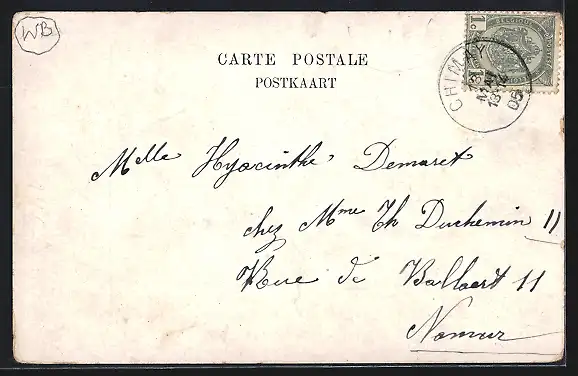 WB
CARTE POSTALE
POSTKAART
BELGIQUE
CHIMAY
05
Melle Hyacinthe Demaret
chez Mme Th Duchemin 11
Rue de Ballaert 11
Namur